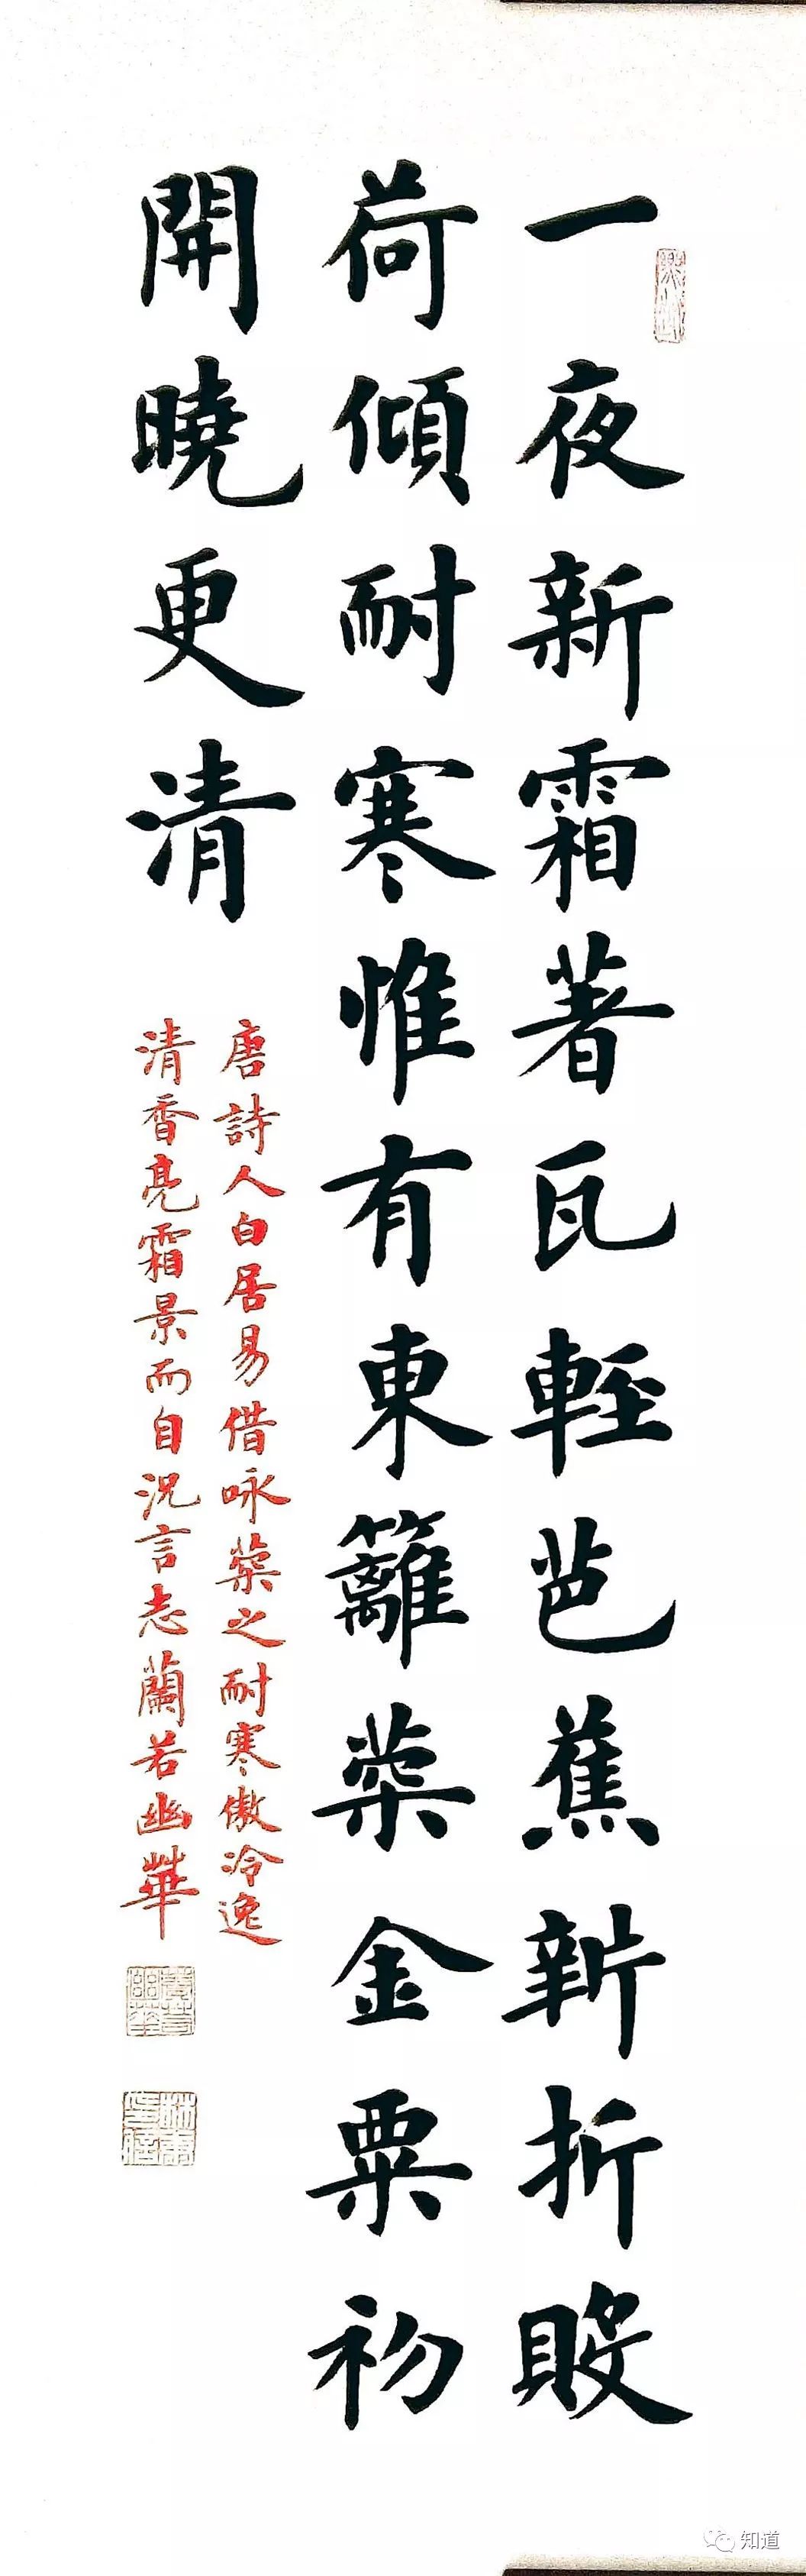 一夜新霜著瓦輕芭蕉新折敗
荷傾耐寒惟有東籬菊金粟初
開曉更清
唐詩人白居易借咏菊之耐寒傲冷逸
清香亮霜景而自況言志蘭若幽華
知道